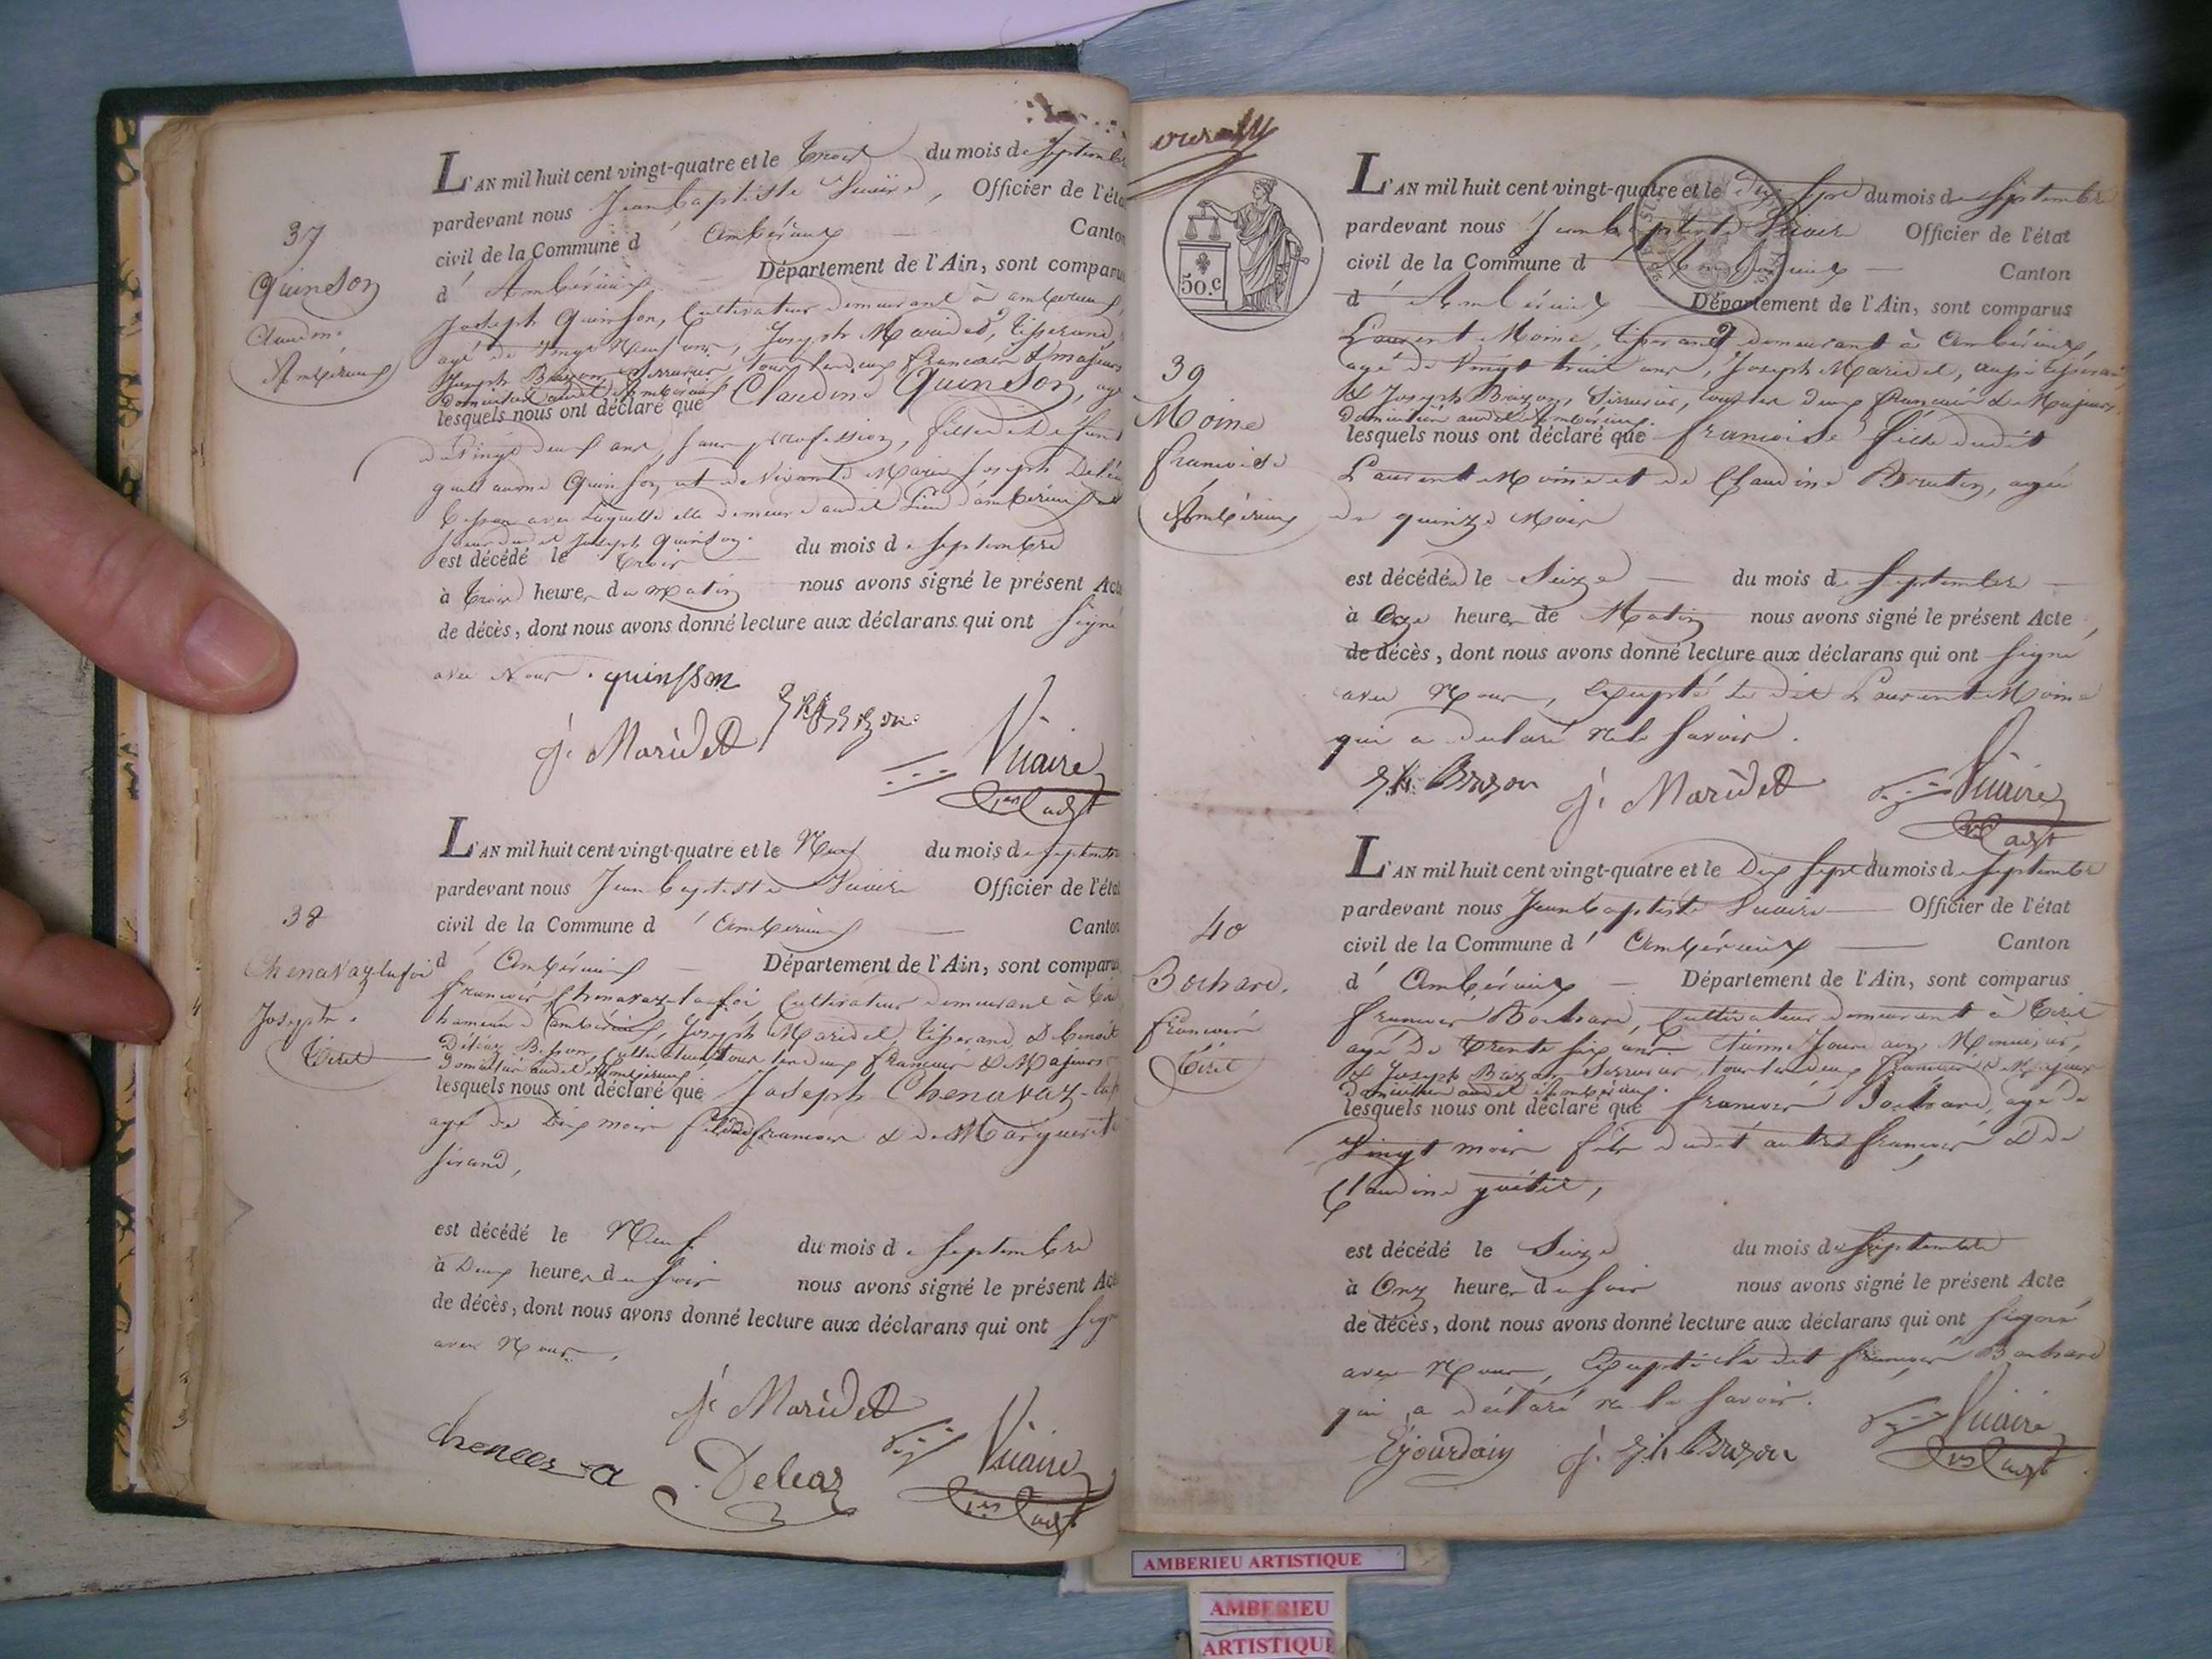 L'AN mil huit cent vingt-quatre et le trois du mois de Septembre
pardevant nous Jean Baptiste Vicaire, Officier de l'éta
civil de la Commune d' Ambérieux Canton
d' Ambérieux Département de l'Ain, sont comparus
37
Quinson
Claudine
Ambérieux
Joseph Quinson, Cultivateur demeurant à Ambérieux,
agé de Vingt Neuf ans, Joseph Maridet, tisserand,
Joseph Brizon Serrurier, tous les deux francais & majeurs
domiciliés audit Ambérieux
lesquels nous ont déclaré que Claudine Quinson, agé
de Vingt deux ans, sans profession, fille de défunt
Quinson, et de Vivante Marie Joseph
Besson avec Laquelle elle demeure audit Lieu d'ambérieux
soeur dudit Joseph Quinson.
est décédé le trois du mois de Septembre
à trois heures du matin nous avons signé le présent Acte
de décès, dont nous avons donné lecture aux déclarans qui ont signé
avec Nous. quinsson
J. Maridet Jph Brizon Vicaire
L'AN mil huit cent vingt-quatre et le Neuf du mois de Septembre
pardevant nous Jean Baptiste Vicaire Officier de l'état
civil de la Commune d' Ambérieux Canton
d' Ambérieux Département de l'Ain, sont comparus
38
Chenavaz-lafoi
Joseph.
Tiret
francois Chenavaz-lafoi Cultivateur demeurant à Tiret
hameau d'ambérieux, Joseph Maridet, tisserand, & benoit
Deléaz Besson, Cultivateur tous les deux francais & Majeurs
domiciliés audit Ambérieux
lesquels nous ont déclaré que Joseph Chenavaz-lafoi
agé de Dix mois fils de francois & de Marguerite
Sirand,
est décédé le Neuf du mois de Septembre
à Deux heures du soir nous avons signé le présent Acte
de décès, dont nous avons donné lecture aux déclarans qui ont signé
avec Nous,
J. Maridet
Deleaz Vicaire
50.c
L'AN mil huit cent vingt-quatre et le Dix Sept du mois de Septembre
pardevant nous Jean Baptiste Vicaire Officier de l'état
civil de la Commune d' Ambérieux Canton
d' Ambérieux Département de l'Ain, sont comparus
39
Moine
francoise
Ambérieux
Laurent Moine, tisserand demeurant à Ambérieux,
agé de Vingt huit ans, Joseph Maridet, aussi tisserand,
& Joseph Brizon, Serrurier, tous les deux francais & Majeurs,
domiciliés audit Ambérieux.
lesquels nous ont déclaré que francoise fille dudit
Laurent Moine et de Claudine Brutin, agée
de quinze Mois
est décédée le Seize du mois de Septembre
à Onze heures de Matin nous avons signé le présent Acte
de décès, dont nous avons donné lecture aux déclarans qui ont signé
avec Nous, Excepté le dit Laurent Moine
qui a déclaré ne le savoir.
Jph Brizon J. Maridet Vicaire
L'AN mil huit cent vingt-quatre et le Dix Sept du mois de Septembre
pardevant nous Jean Baptiste Vicaire Officier de l'état
civil de la Commune d' Ambérieux Canton
d' Ambérieux Département de l'Ain, sont comparus
40
Bochard.
francois
Tiret
francois Bochard, Cultivateur demeurant à Tiret
agé De trente six ans. Étienne Jourdain, Menuisier,
& Joseph Brizon Serrurier, tous les deux francais & Majeurs
domiciliés audit Ambérieux.
lesquels nous ont déclaré que francois Bochard, agé de
Vingt mois fils dudit autre francois & de
Claudine
est décédé le Seize du mois de Septembre
à Onze heures du soir nous avons signé le présent Acte
de décès, dont nous avons donné lecture aux déclarans qui ont signé
avec Nous, Excepté le dit francois Bochard
qui a déclaré ne le savoir.
Ejourdain Jph Brizon Vicaire
AMBERIEU ARTISTIQUE
AMBERIEU
ARTISTIQUE